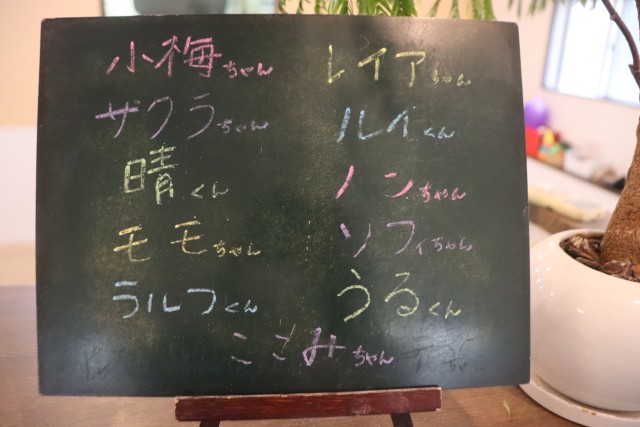 小梅ちゃん
ザクラちゃん
晴くん
モモちゃん
ラルフくん
レイアちゃん
ルイくん
ノンちゃん
ソフィちゃん
うるくん
こさみちゃん